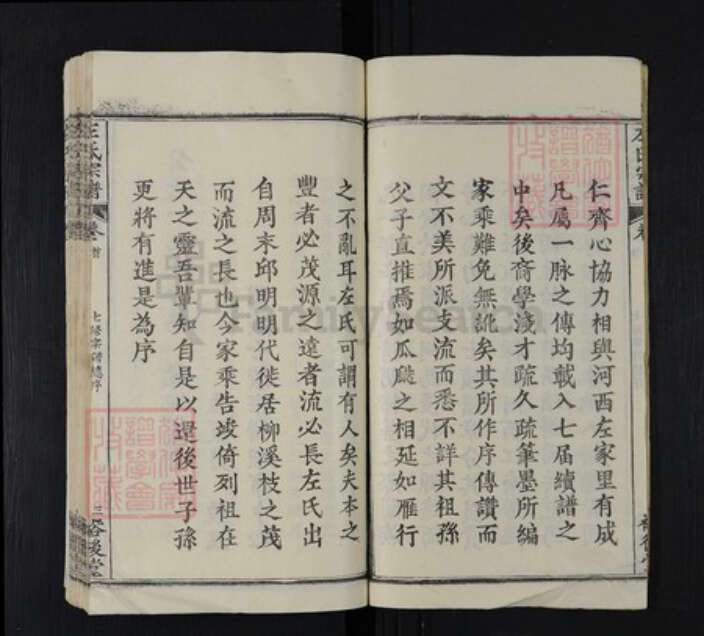 仁齊心協力相與河西左家里有成
凡屬一脉之傳均載入七届續譜之
中矣後裔學淺才疏久疏筆墨所編
家乘難免無訛矣其所作序傳讚而
文不美所派支流而悉不詳其祖孫
父子直推焉如瓜瓞之相延如雁行
之不亂耳左氏可謂有人矣夫本之
豐者必茂源之遠者流必長左氏出
自周末邱明明代徙居柳溪枝之茂
而流之長也今家乘告竣倚列祖在
天之靈吾輩知自是以還後世子孫
更將有進是為序
左氏宗譜
卷首
七修宗譜總序
二
裕後堂
FamilySearch